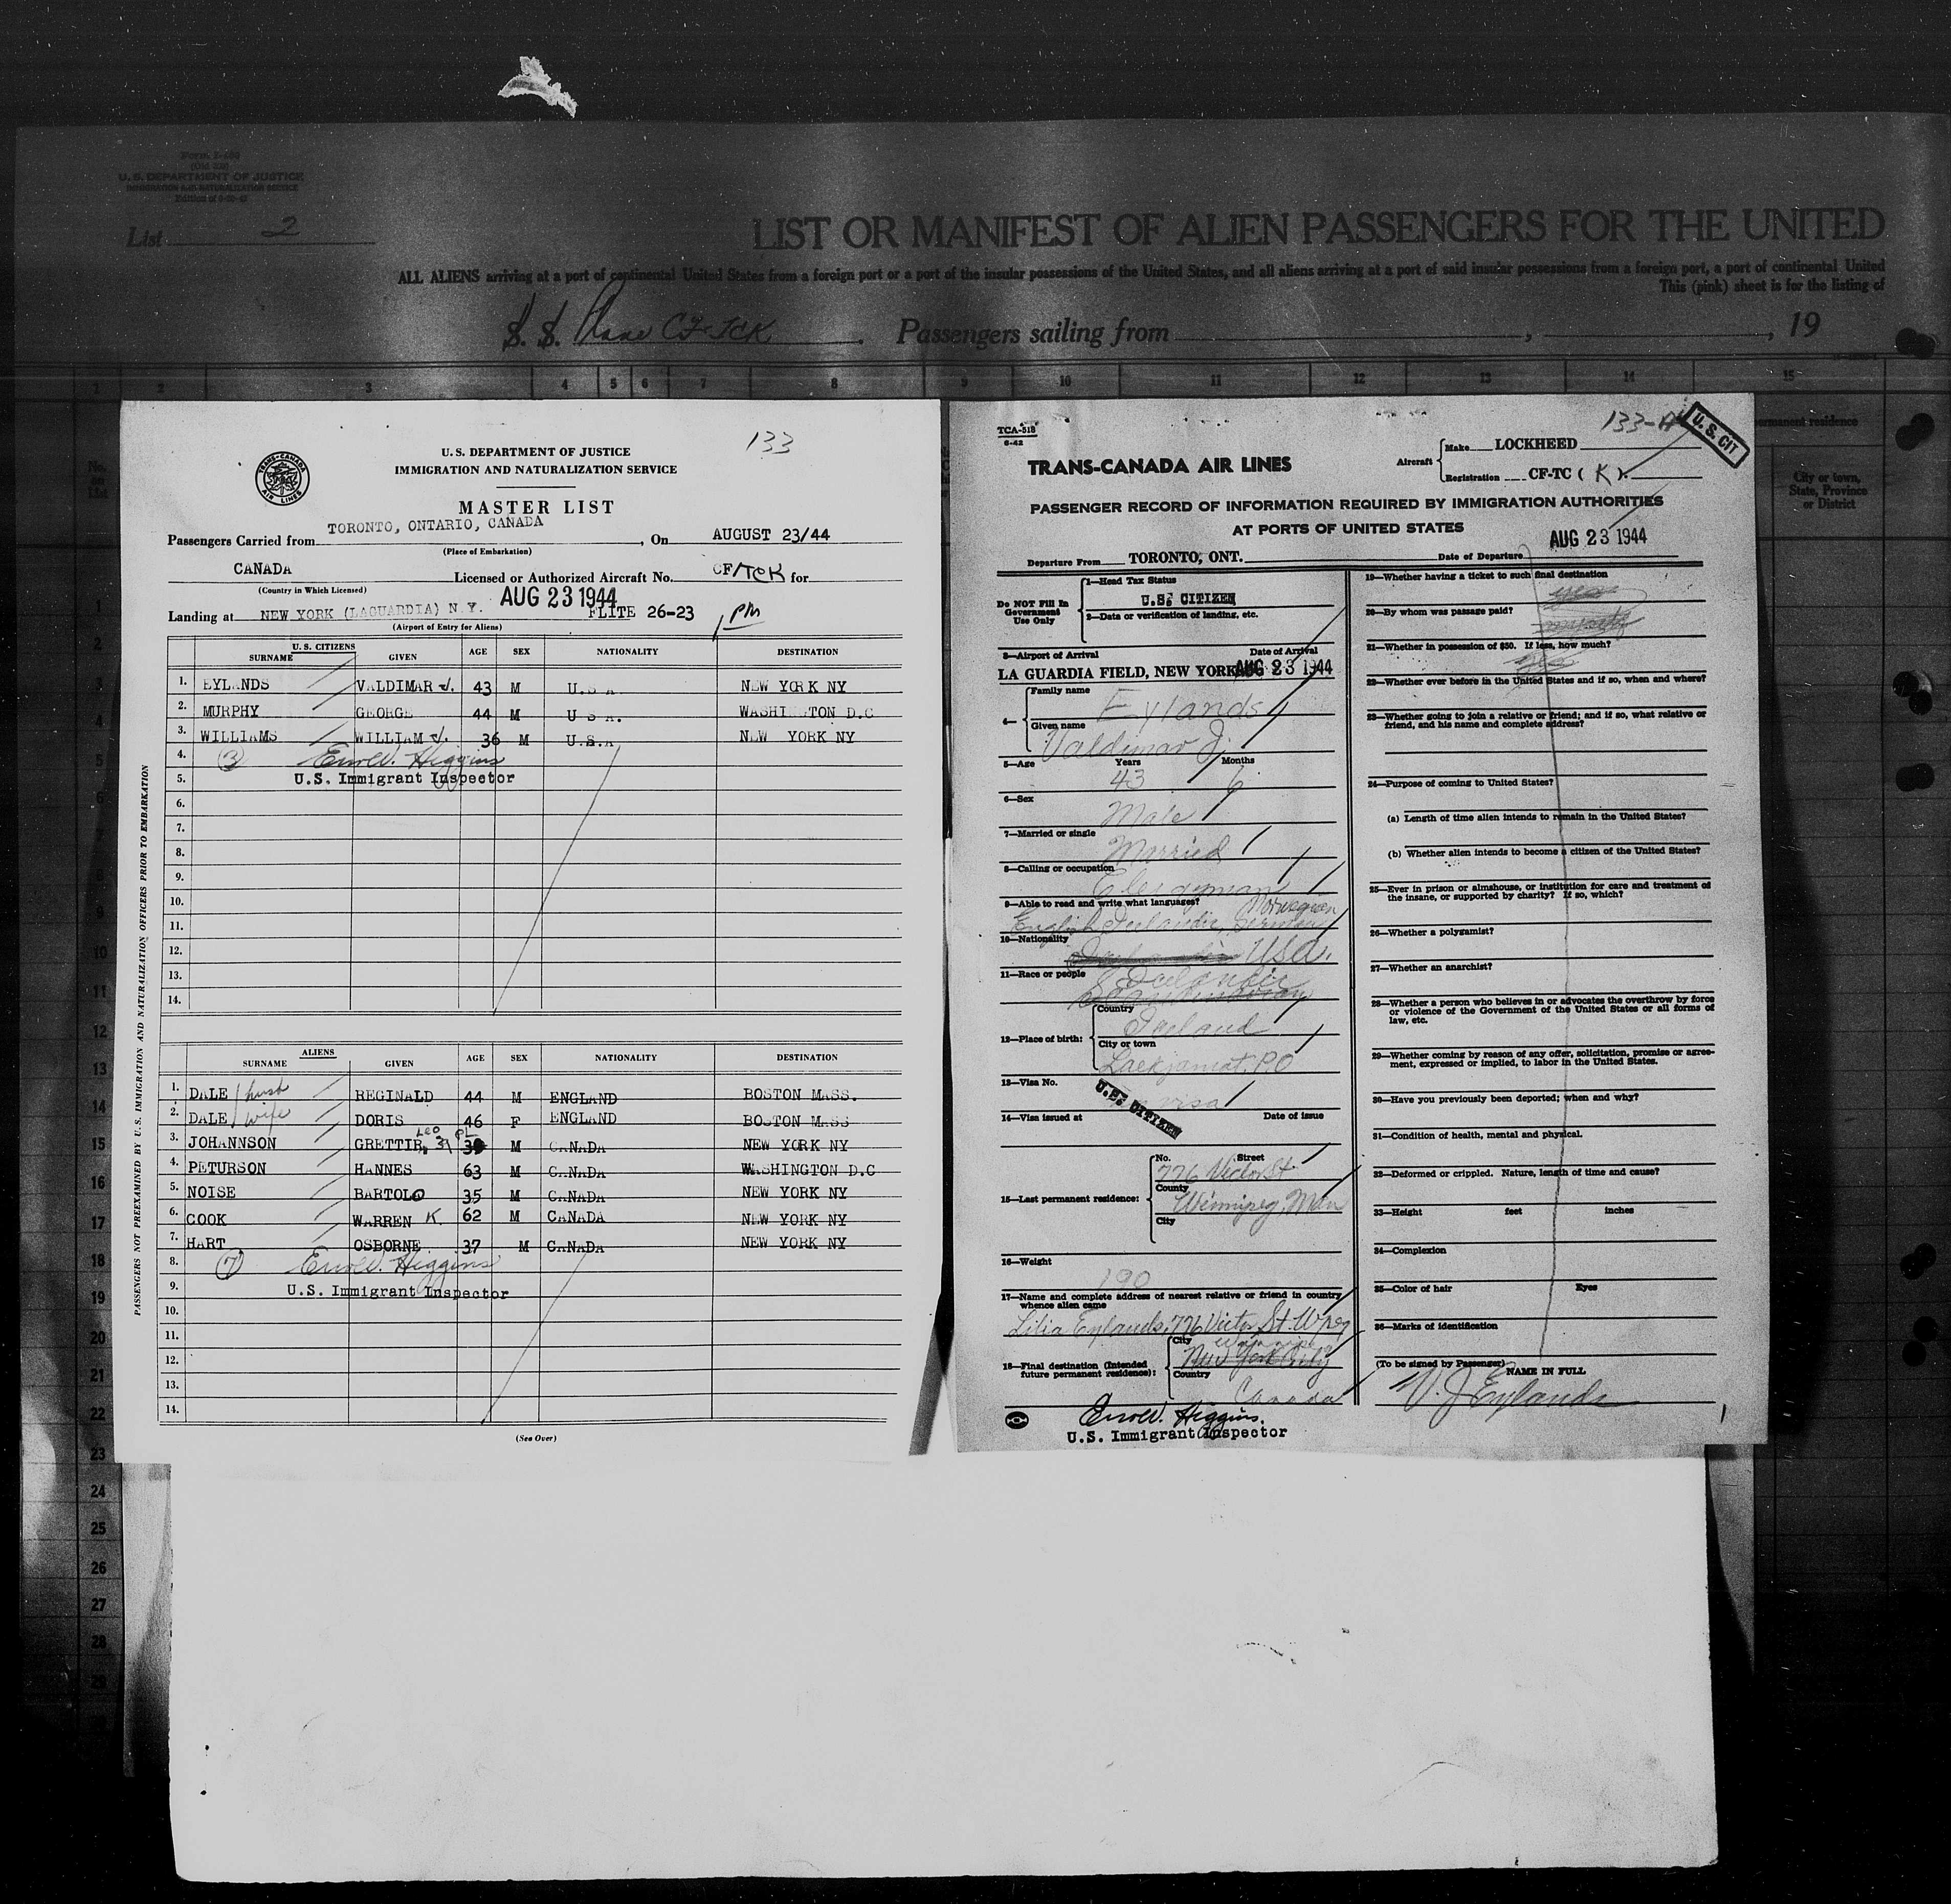 Form I-480
U. S. DEPARTMENT OF JUSTICE
IMMIGRATION AND NATURALIZATION SERVICE
List 2
LIST OR MANIFEST OF ALIEN PASSENGERS FOR THE UNITED
ALL ALIENS arriving at a port of continental United States from a foreign port or a port of the insular possessions of the United States, and all aliens arriving at a port of said insular possessions from a foreign port, a port of continental United
This (pink) sheet is for the listing of
S. S. Plane CF-TCK. Passengers sailing from , , 19
1 2 3 4 5 6 7 8 9 10 11 12 13 14 15
No. on List
permanent residence
City or town, State, Province or District
133
TRANS-CANADA AIR LINES
U. S. DEPARTMENT OF JUSTICE
IMMIGRATION AND NATURALIZATION SERVICE
MASTER LIST
Passengers Carried from TORONTO, ONTARIO, CANADA, On AUGUST 23/44
(Place of Embarkation)
CANADA Licensed or Authorized Aircraft No. CF/TCK for
(Country in Which Licensed)
AUG 23 1944
Landing at NEW YORK (LAGUARDIA) N.Y. FLITE 26-23 1 PM
(Airport of Entry for Aliens)
U. S. CITIZENS
SURNAME GIVEN AGE SEX NATIONALITY DESTINATION
1. EYLANDS VALDIMAR J. 43 M U.S A NEW YORK NY
2. MURPHY GEORGE 44 M U S A. WASHINGTON D.C
3. WILLIAMS WILLIAM J. 36 M U.S.A NEW YORK NY
4. (3) Errol V. Higgins
5. U.S. Immigrant Inspector
6.
7.
8.
9.
10.
11.
12.
13.
14.
ALIENS
SURNAME GIVEN AGE SEX NATIONALITY DESTINATION
1. DALE / husb REGINALD 44 M ENGLAND BOSTON MASS.
2. DALE / wife DORIS 46 F ENGLAND BOSTON MASS
3. JOHANNSON GRETTIR Leo 39 M CANADA NEW YORK NY
4. PETURSON HANNES 63 M CANADA WASHINGTON D.C
5. NOISE BARTOLO 35 M CANADA NEW YORK NY
6. COOK WARREN K. 62 M CANADA NEW YORK NY
7. HART OSBORNE 37 M CANADA NEW YORK NY
8. (7) Errol V. Higgins
9. U.S. Immigrant Inspector
10.
11.
12.
13.
14.
(See Over)
PASSENGERS NOT PREEXAMINED BY U. S. IMMIGRATION AND NATURALIZATION OFFICERS PRIOR TO EMBARKATION
TCA-518
6-42
133-A
U. S. CIT
TRANS-CANADA AIR LINES
Aircraft Make LOCKHEED
Registration CF-TC ( K ).
PASSENGER RECORD OF INFORMATION REQUIRED BY IMMIGRATION AUTHORITIES
AT PORTS OF UNITED STATES
AUG 23 1944
Departure From TORONTO, ONT. Date of Departure
Do NOT Fill In Government Use Only
1—Head Tax Status
U.S. CITIZEN
2—Date or verification of landing, etc.
3—Airport of Arrival Date of Arrival
LA GUARDIA FIELD, NEW YORK AUG 23 1944
4— Family name Eylands
Given name Valdimar J.
5—Age Years Months
43 6
6—Sex
Male
7—Married or single
Married
8—Calling or occupation
Clergyman
9—Able to read and write what languages?
Norwegian
English Icelandic, German
10—Nationality
USA.
11—Race or people
Icelandic
Scandinavian
12—Place of birth: Country
Iceland
City or town
Laekjamot, P.O
13—Visa No.
visa
U.S. CITIZEN
14—Visa issued at Date of issue
15—Last permanent residence: No. Street
776 Victor St
County
Winnipeg, Man
City
16—Weight
190
17—Name and complete address of nearest relative or friend in country whence alien came
Lilia Eylands, 776 Victor St. Wpeg
18—Final destination (Intended future permanent residence): City
Winnipeg
New York City
Country
Canada
Errol V. Higgins.
U.S. Immigrant Inspector
19—Whether having a ticket to such final destination
yes
20—By whom was passage paid?
myself
21—Whether in possession of $50. If less, how much?
yes
22—Whether ever before in the United States and if so, when and where?
23—Whether going to join a relative or friend; and if so, what relative or friend, and his name and complete address?
24—Purpose of coming to United States?
(a) Length of time alien intends to remain in the United States?
(b) Whether alien intends to become a citizen of the United States?
25—Ever in prison or almshouse, or institution for care and treatment of the insane, or supported by charity? If so, which?
26—Whether a polygamist?
27—Whether an anarchist?
28—Whether a person who believes in or advocates the overthrow by force or violence of the Government of the United States or all forms of law, etc.
29—Whether coming by reason of any offer, solicitation, promise or agreement, expressed or implied, to labor in the United States.
30—Have you previously been deported; when and why?
31—Condition of health, mental and physical.
32—Deformed or crippled. Nature, length of time and cause?
33—Height feet inches
34—Complexion
35—Color of hair Eyes
36—Marks of identification
(To be signed by Passenger) NAME IN FULL
V. J. Eylands